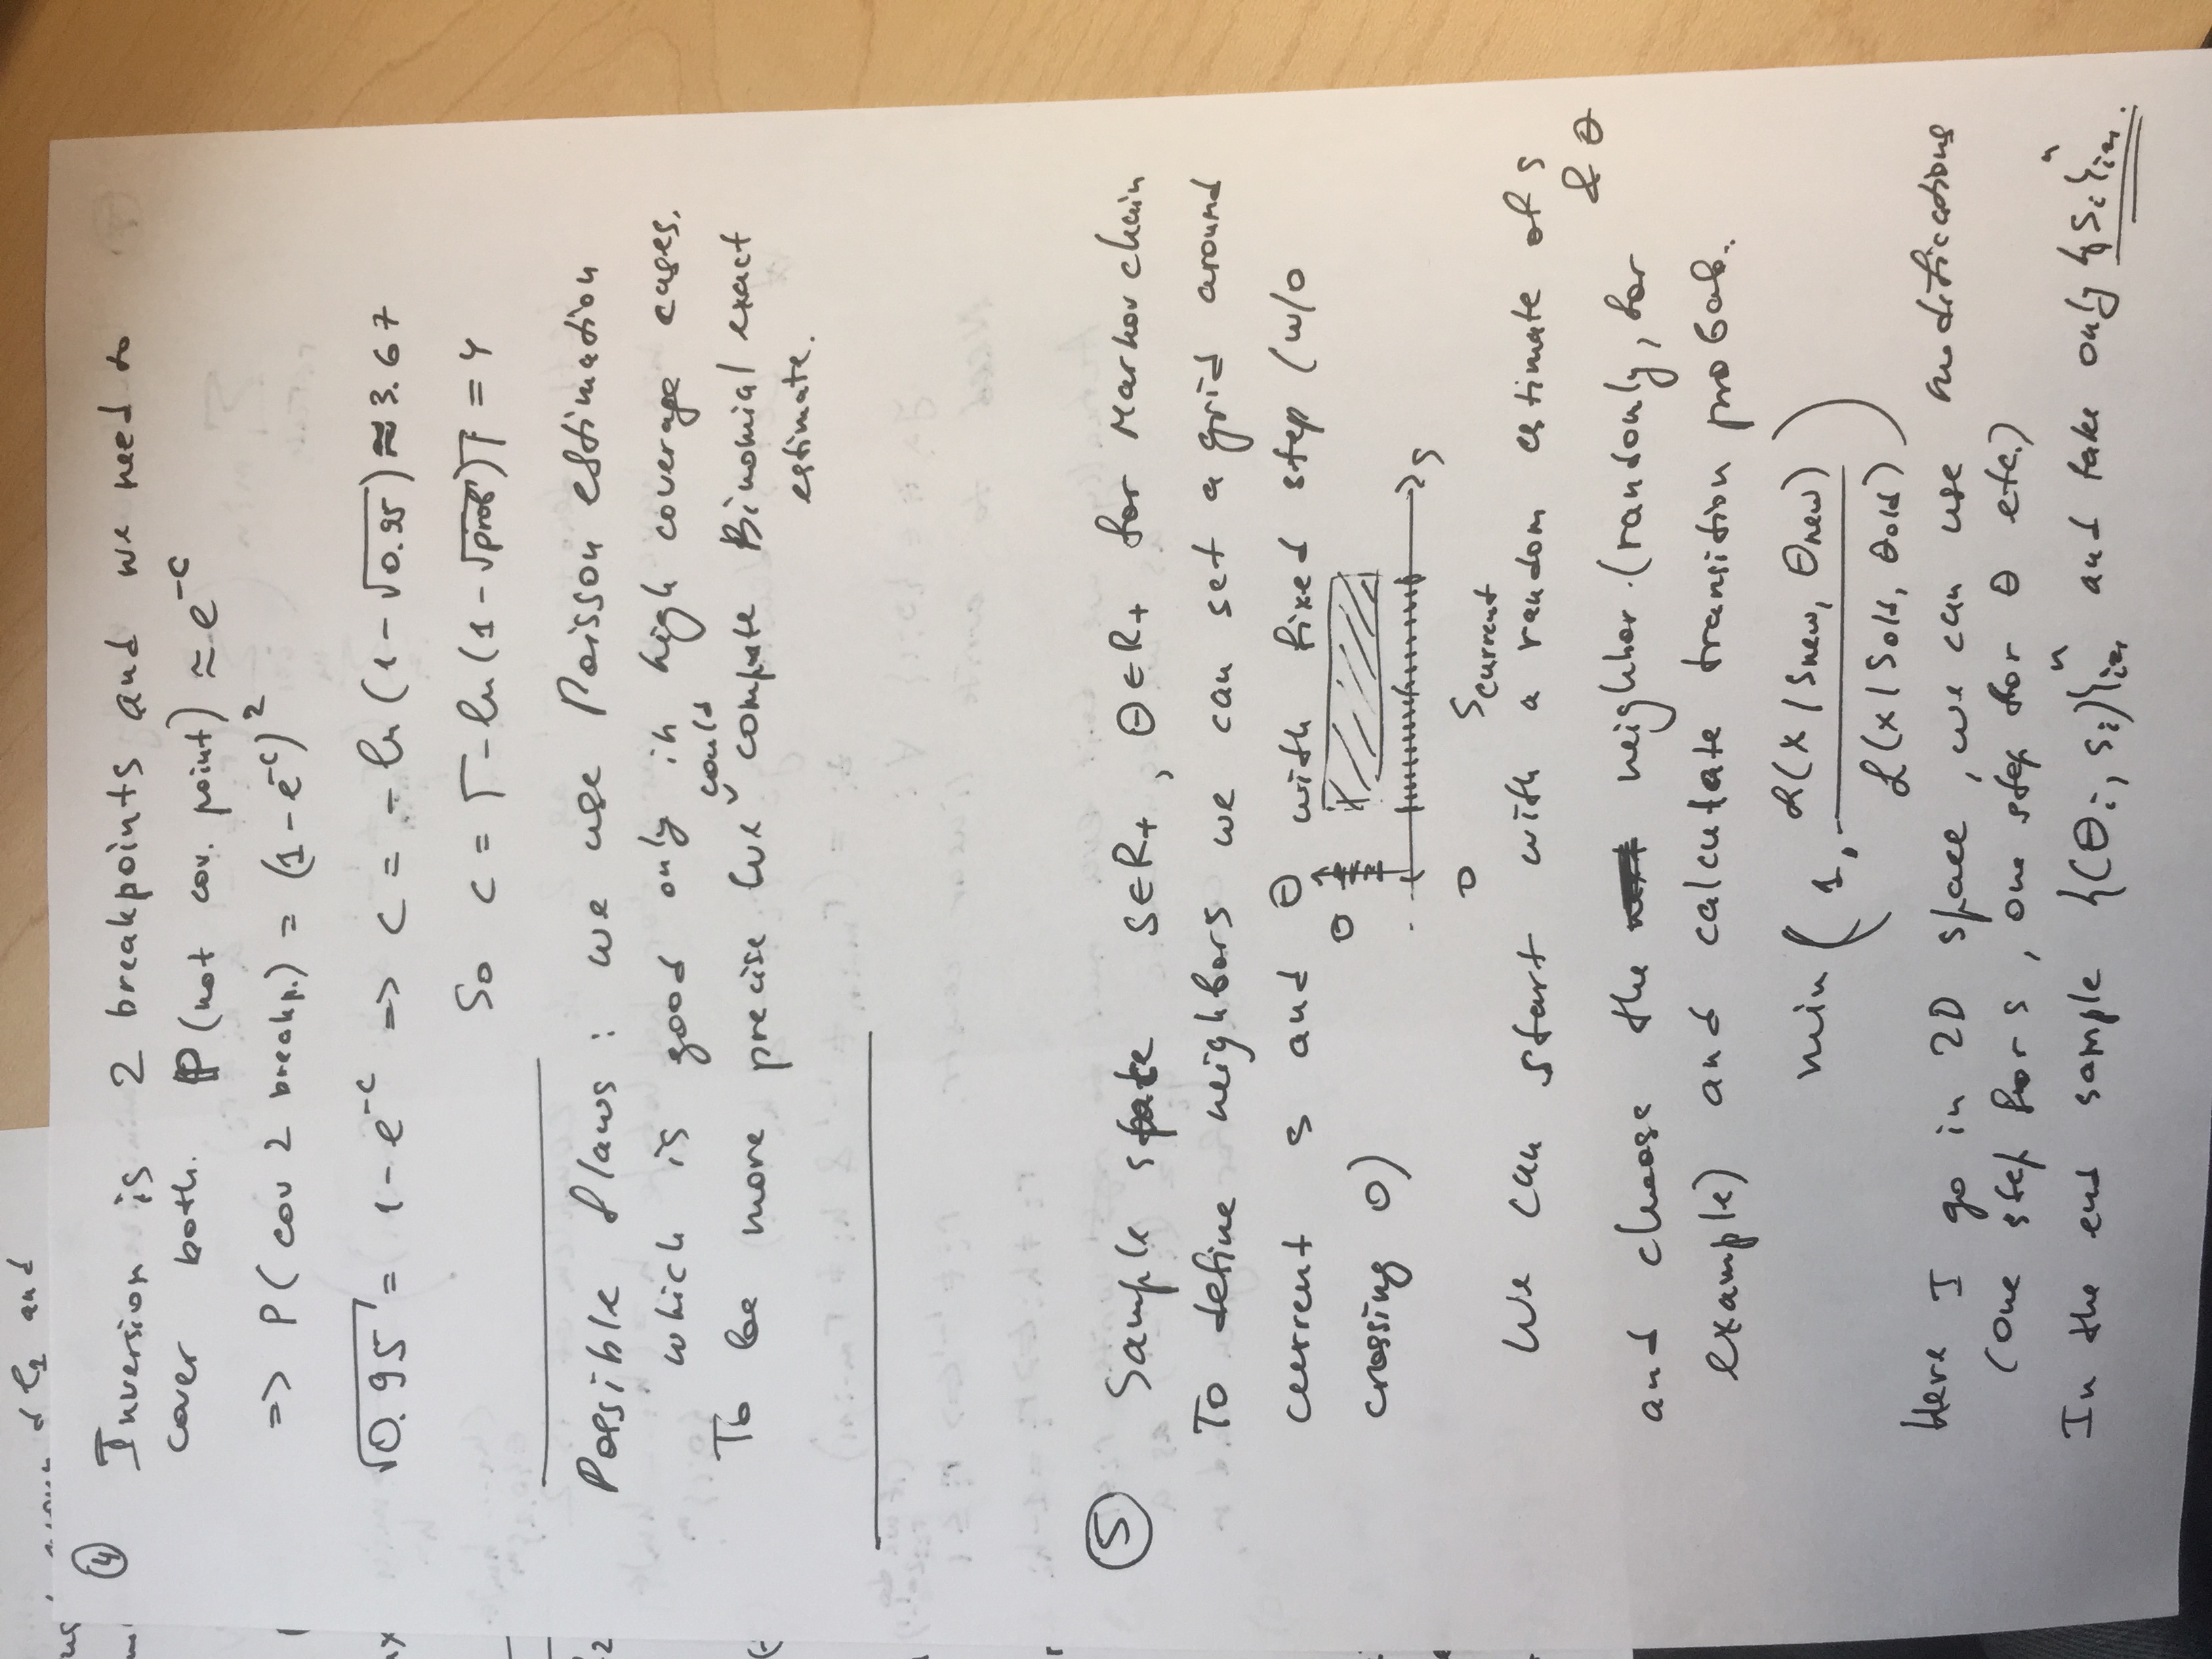 d l1 and
④ Inversion is 2 breakpoints and we need to
cover both. P (not cov. point) ≈ e^{-c}
=> P ( cov 2 breakp.) = (1 - e^{-c})^2
√0.95 = 1 - e^{-c} => c = - ln (1 - √0.95) ≈ 3.67
So c = ⌈- ln (1 - √prob)⌉ = 4
Possible flaws : we use Poisson estimation
which is good only in high coverage cases.
could
To be more precise we ˅ compute Binomial exact
estimate.
⑤ Sample space S∈R+ , Θ∈R+ for Markov chain
To define neighbors we can set a grid around
current s and Θ with fixed step (w/o
crossing 0)
Θ
s
0
S current
We can start with a random estimate of s
& Θ
and choose the neighbor (randomly, for
example) and calculate transition probab.
min ( 1, L(x | Snew, Θnew) / L(x | Sold, Θold) )
Here I go in 2D space , we can use modifications
(one step for s , one step for Θ etc.)
In the end sample {(Θi, si)}^n_{i=1} and take only {si}^n_{i=1}.